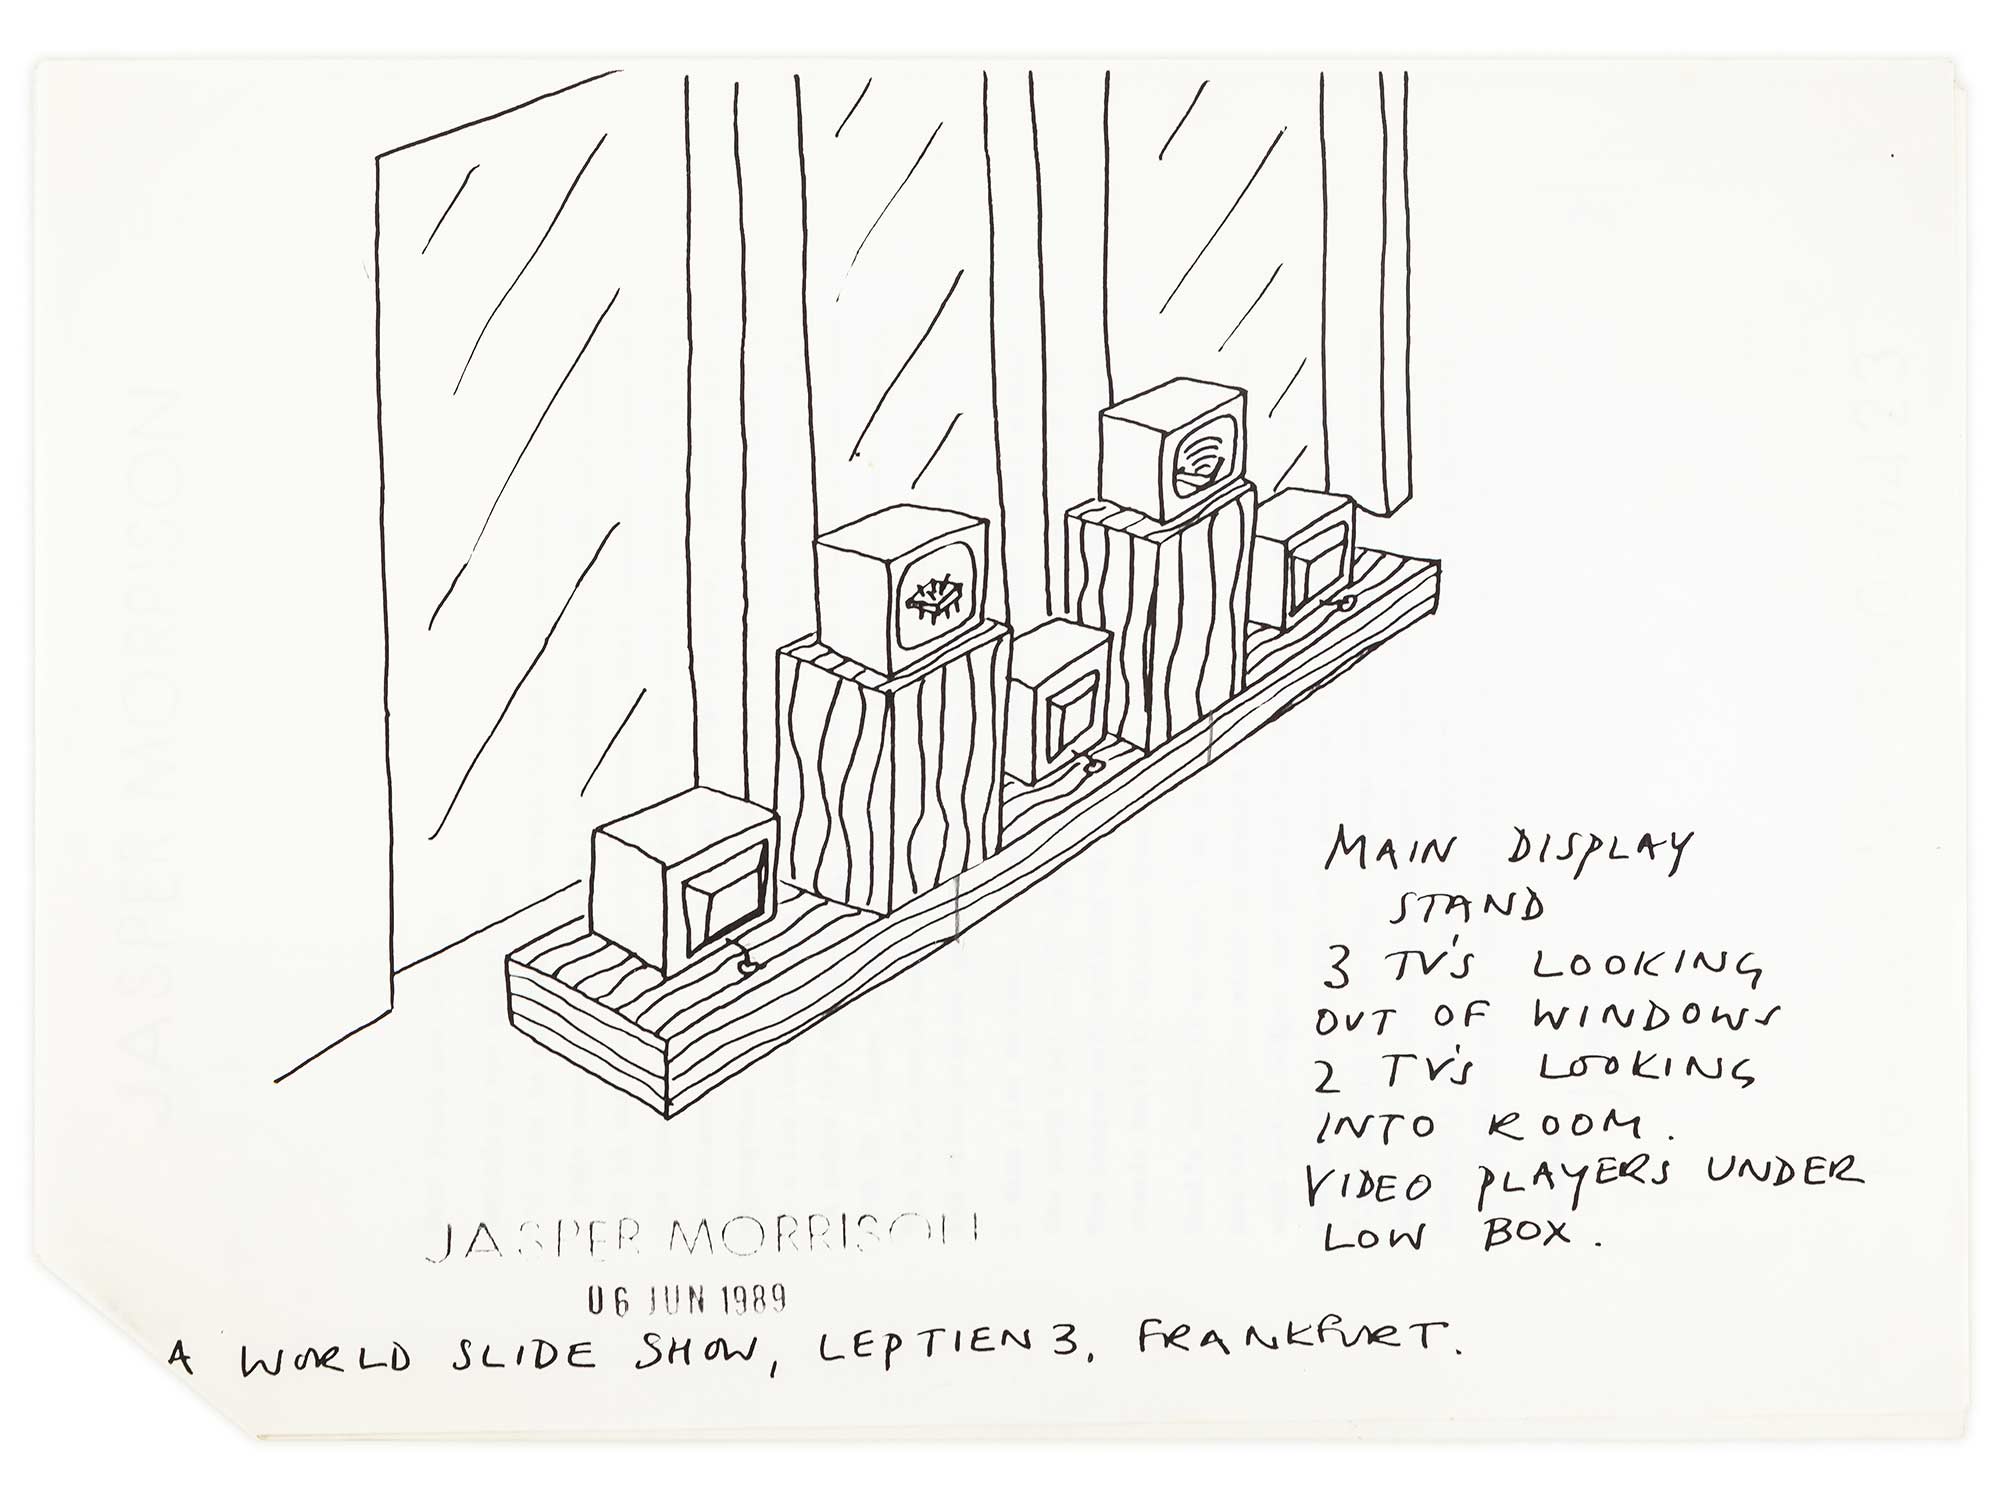 MAIN DISPLAY
STAND
3 TV'S LOOKING
OUT OF WINDOWS
2 TV'S LOOKING
INTO ROOM.
VIDEO PLAYERS UNDER
LOW BOX.
JASPER MORRISON
06 JUN 1989
A WORLD SLIDE SHOW, LEPTIEN 3, FRANKFURT.
JASPER MORRISON